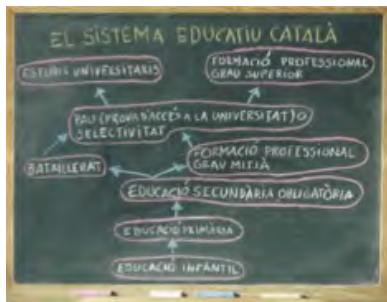 EL SISTEMA EDUCATIU CATALÀ
ESTUDIS UNIVERSITARIS
FORMACIÓ PROFESSIONAL
GRAU SUPERIOR
PAU (PROVA D'ACCÉS A LA UNIVERSITAT) O
SELECTIVITAT
BATALLERAT
FORMACIÓ PROFESSIONAL
GRAU MITJÀ
EDUCACIÓ SECUNDÀRIA OBLIGATÒRIA
EDUCACIÓ PRIMÀRIA
EDUCACIÓ INFANTIL